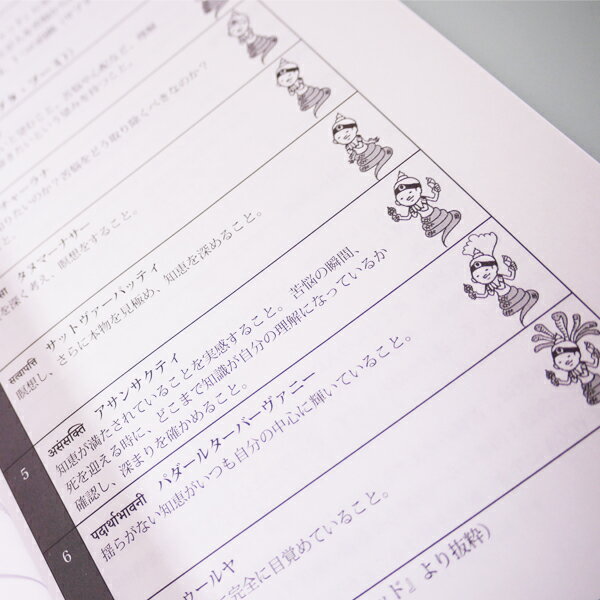 チャーラナ
知りたいのか？苦悩をどう取り除くべきなのか？
タヌマーナサー
を深く考え、瞑想をすること。
सत्वापत्ति サットヴァーパッティ
瞑想し、さらに本物を見極め、知恵を深めること。
5
असंसक्ति アサンサクティ
知恵が満たされていることを実感すること。苦悩の瞬間、
死を迎える時に、どこまで知識が自分の理解になっているか
確認し、深まりを確かめること。
6
पदार्थाभावनी パダールターバーヴァニー
揺らがない知恵がいつも自分の中心に輝いていること。
ゥールヤ
完全に目覚めていること。
ド』より抜粋）